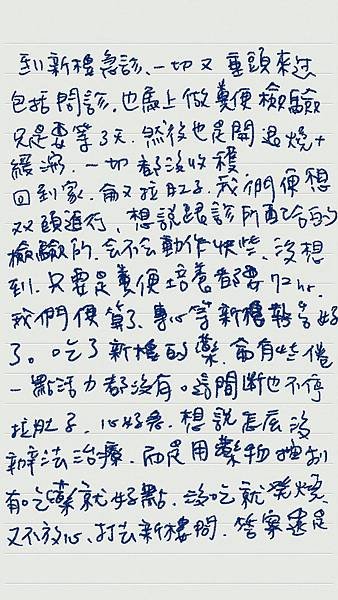 到新樓急診、一切又重頭來過
包括問診.也馬上做糞便檢驗
只是要等3天.然後也是開退燒+
緩瀉.一切都沒收穫
回到家.侖又拉肚子.我們便想
双頭進行、想說跟診所配合的
檢驗所.會不會動作快些、沒想
到.只要是糞便培養都要72hr.
我們便算了、專心等新樓報告好
了。吃了新樓的藥.侖有些倦
一點活力都沒有。這間斷也不停
拉肚子.心好急.想說怎麼沒
辦法治療.而是用藥物控制
有吃藥就好點.沒吃就發燒.
又不放心、打去新樓問.答案還是